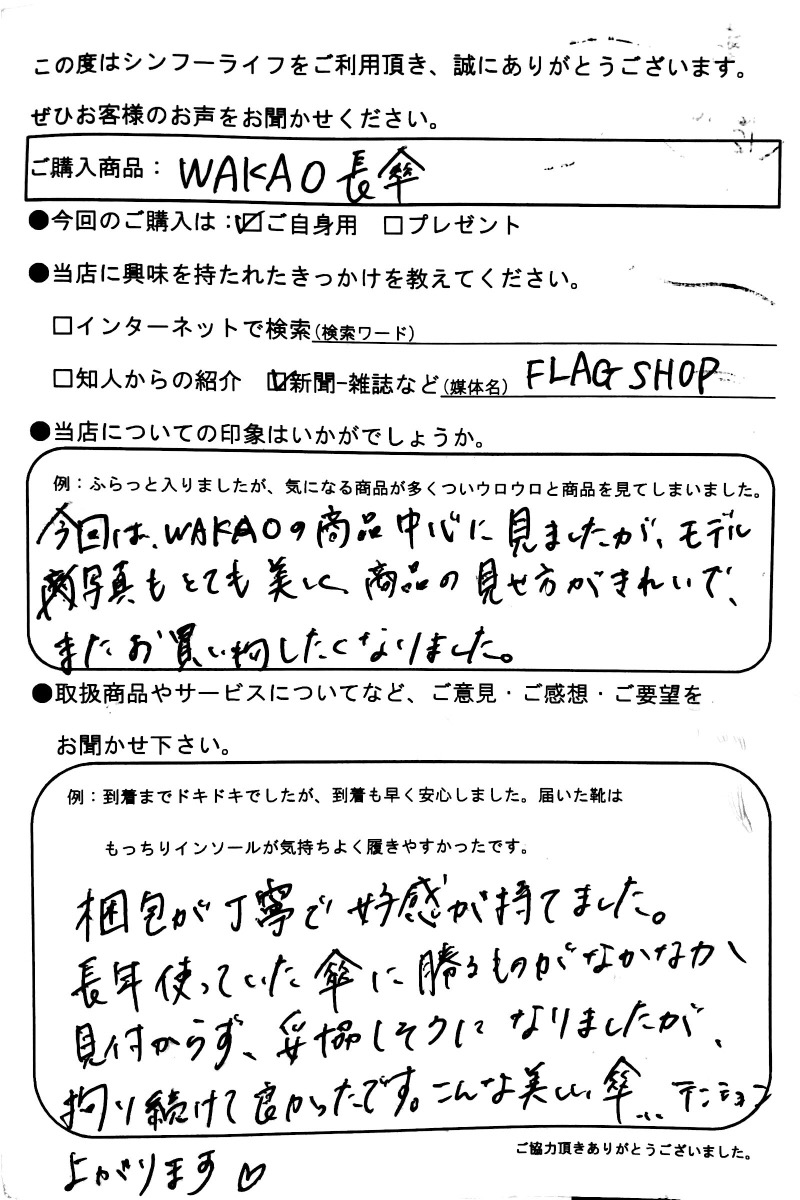 この度はシンフーライフをご利用頂き、誠にありがとうございます。
ぜひお客様のお声をお聞かせください。
ご購入商品：WAKAO 長傘
●今回のご購入は：☑ご自身用 □プレゼント
●当店に興味を持たれたきっかけを教えてください。
□インターネットで検索(検索ワード)
□知人からの紹介 ☑新聞-雑誌など(媒体名) FLAG SHOP
●当店についての印象はいかがでしょうか。
例：ふらっと入りましたが、気になる商品が多くついウロウロと商品を見てしまいました。
今回は、WAKAOの商品中心に見ましたが、モデル
写真もとても美しく、商品の見せ方がきれいで、
またお買い物したくなりました。
●取扱商品やサービスについてなど、ご意見・ご感想・ご要望を
お聞かせ下さい。
例：到着までドキドキでしたが、到着も早く安心しました。届いた靴は
もっちりインソールが気持ちよく履きやすかったです。
梱包が丁寧で好感が持てました。
長年使っていた傘に勝るものがなかなか
見付からず、妥協しそうになりましたが、
拘り続けて良かったです。こんな美しい傘… テンション
上がります♡
ご協力頂きありがとうございました。